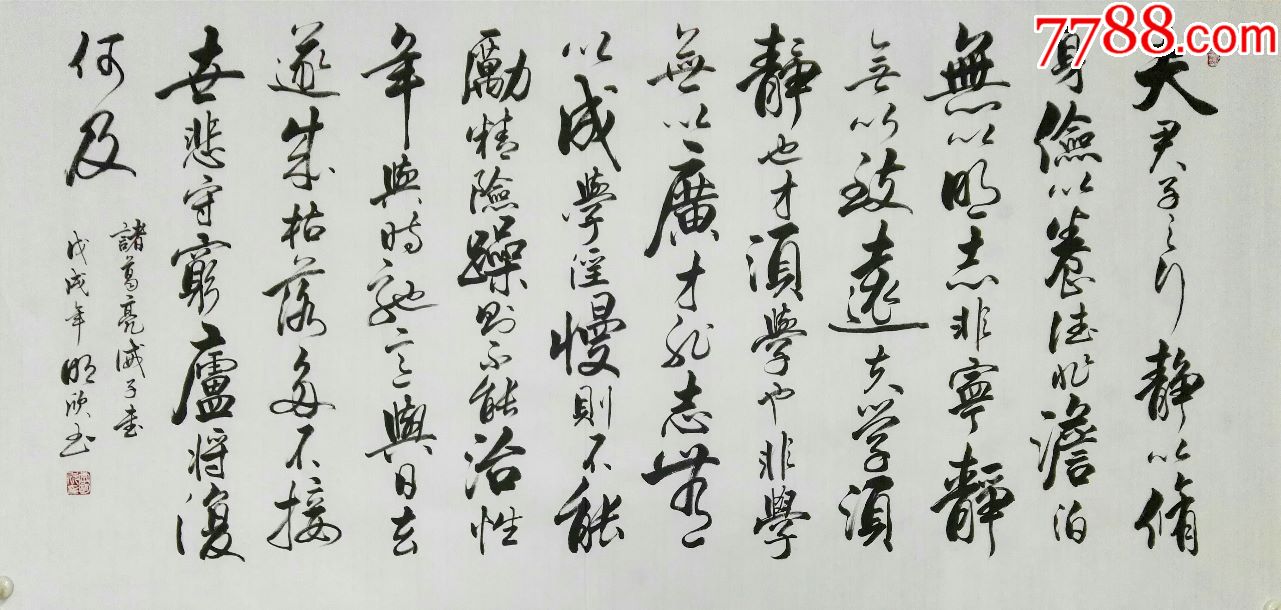 7788.com
夫君子之行靜以脩
身儉以養德非澹泊
無以明志非寧靜
無以致遠夫學須
靜也才須學也非學
無以廣才非志無
以成學淫慢則不能
勵精險躁則不能治性
年與時馳意與日去
遂成枯落多不接
世悲守窮廬將復
何及
諸葛亮誡子書
戊戌年明欣书